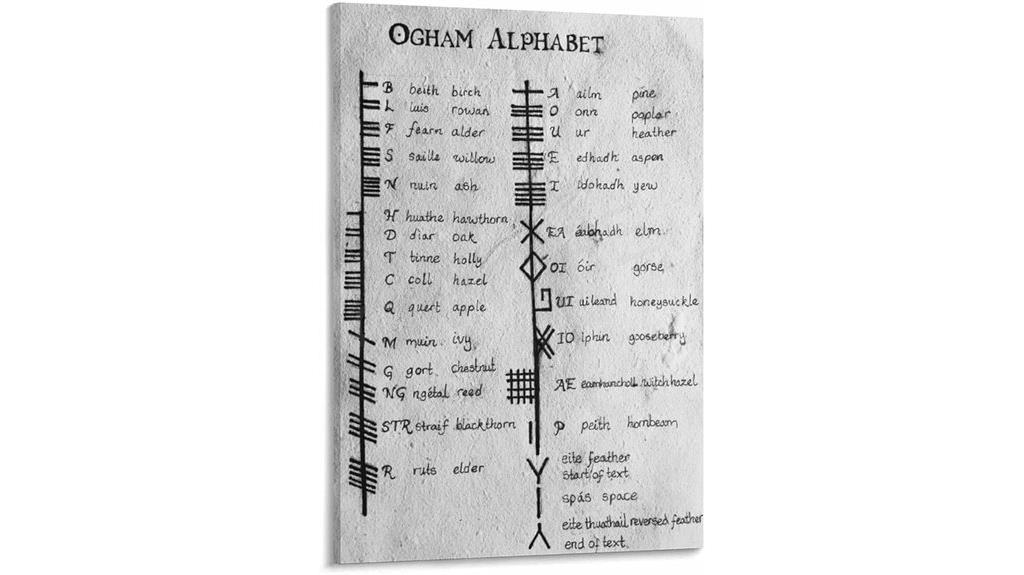 OGHAM ALPHABET
B beith birch
L luis rowan
F fearn alder
S saille willow
N nuin ash
H huathe hawthorn
D diar oak
T tinne holly
C coll hazel
Q quert apple
M muin ivy
G gort chestnut
NG ngétal reed
STR straif blackthorn
R ruts elder
A ailm pine
O onn poplar
U ur heather
E edhadh aspen
I idohadh yew
EA éabhadh elm
OI óir gorse
UI uileand honeysuckle
IO Iphin gooseberry
AE eamhancholl witchhazel
P peith hornbeam
eite feather
start of text
spás space
eite thuathail reversed feather
end of text